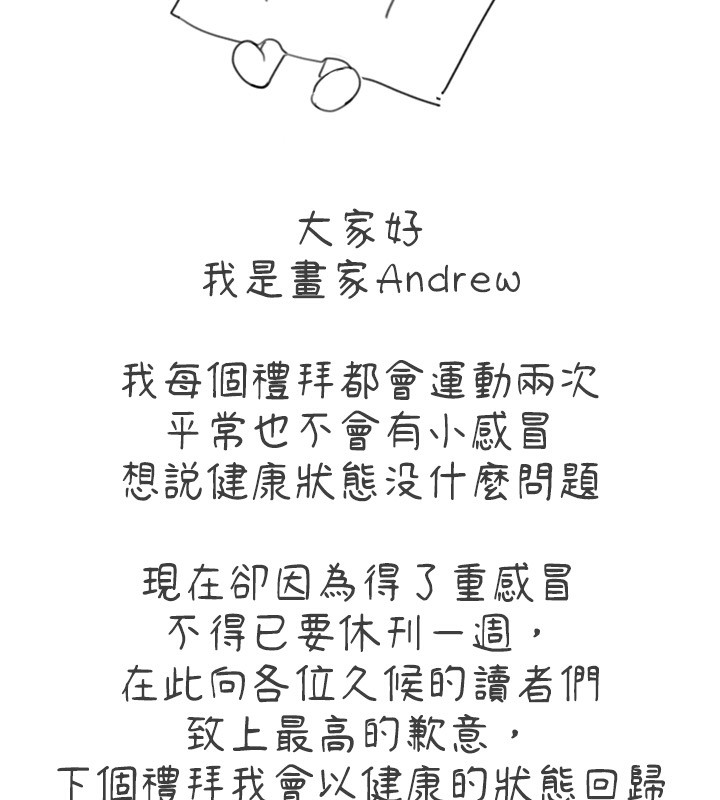 大家好
我是畫家Andrew
我每個禮拜都會運動兩次
平常也不會有小感冒
想說健康狀態没什麼問題
現在卻因為得了重感冒
不得已要休刊一週，
在此向各位久候的讀者們
致上最高的歉意，
下個禮拜我會以健康的狀態回歸